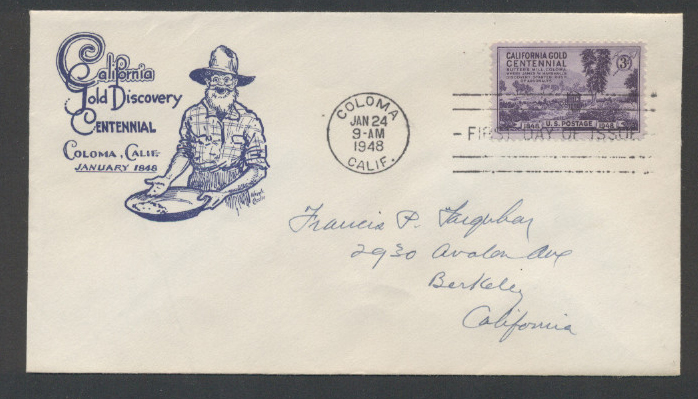 California
Gold Discovery
CENTENNIAL
COLOMA, CALIF.
JANUARY 1848
COLOMA
JAN 24
9-AM
1948
CALIF.
CALIFORNIA GOLD
CENTENNIAL
3¢
1848 U.S. POSTAGE 1948
FIRST DAY OF ISSUE
Francis P. Farquhar
2930 Avalon Ave
Berkeley
California